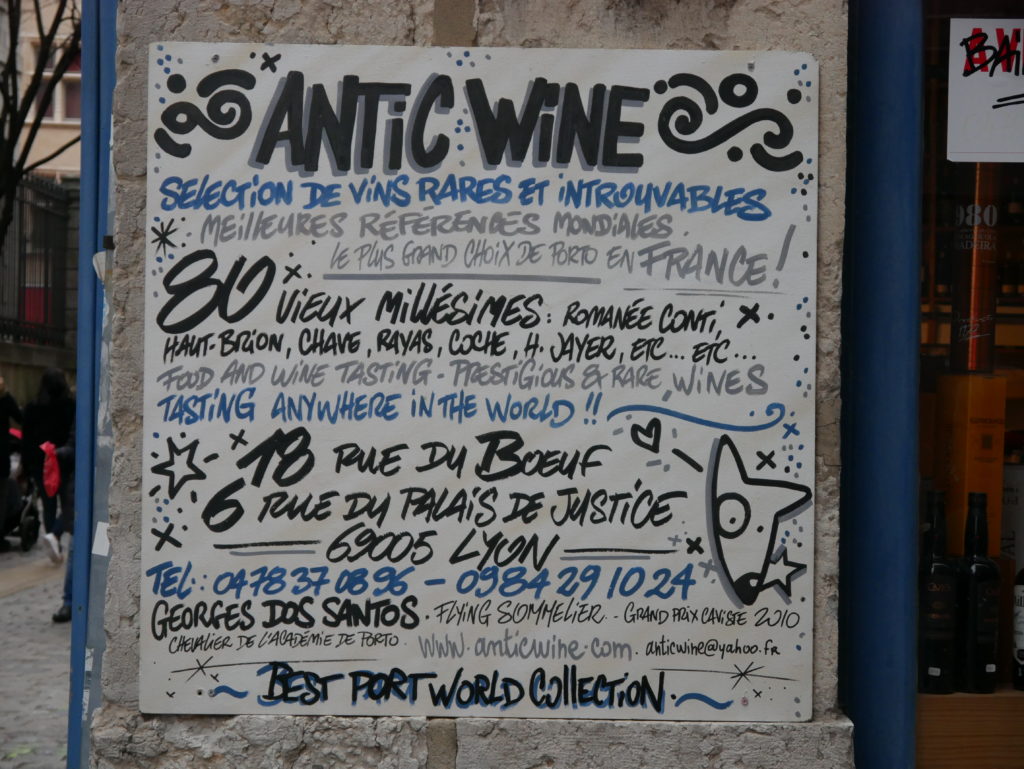 ANTIC WINE
SELECTION DE VINS RARES ET INTROUVABLES
· MEILLEURES RÉFÉRENCES MONDIALES ·
LE PLUS GRAND CHOIX DE PORTO EN FRANCE !
80 VIEUX MILLÉSIMES : ROMANÉE CONTI,
HAUT-BRION, CHAVE, RAYAS, COCHE, H. JAYER, ETC... ETC...
FOOD AND WINE TASTING - PRESTIGIOUS & RARE WINES
TASTING ANYWHERE IN THE WORLD !!
18 RUE DU BOEUF
6 RUE DU PALAIS DE JUSTICE
69005 LYON
TEL : 04 78 37 08 96 - 09 84 29 10 24
GEORGES DOS SANTOS · FLYING SOMMELIER - GRAND PRIX CAVISTE 2010
CHEVALIER DE L'ACADÉMIE DE PORTO · www.anticwine.com · anticwine@yahoo.fr
BEST PORT WORLD COLLECTION ·
980